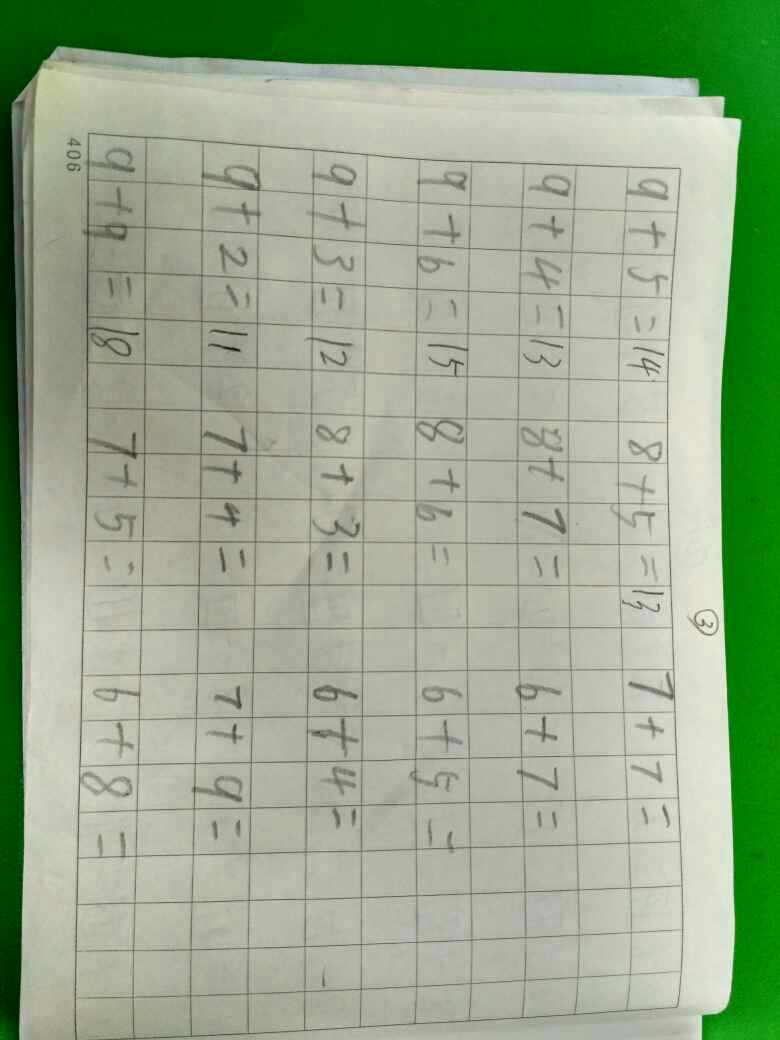 ③
9+5=14 8+5=13 7+7=
9+4=13 8+7= 6+7=
9+6=15 8+6= 6+5=
9+3=12 8+3= 6+4=
9+2=11 7+4= 7+9=
9+9=18 7+5= 6+8=
406